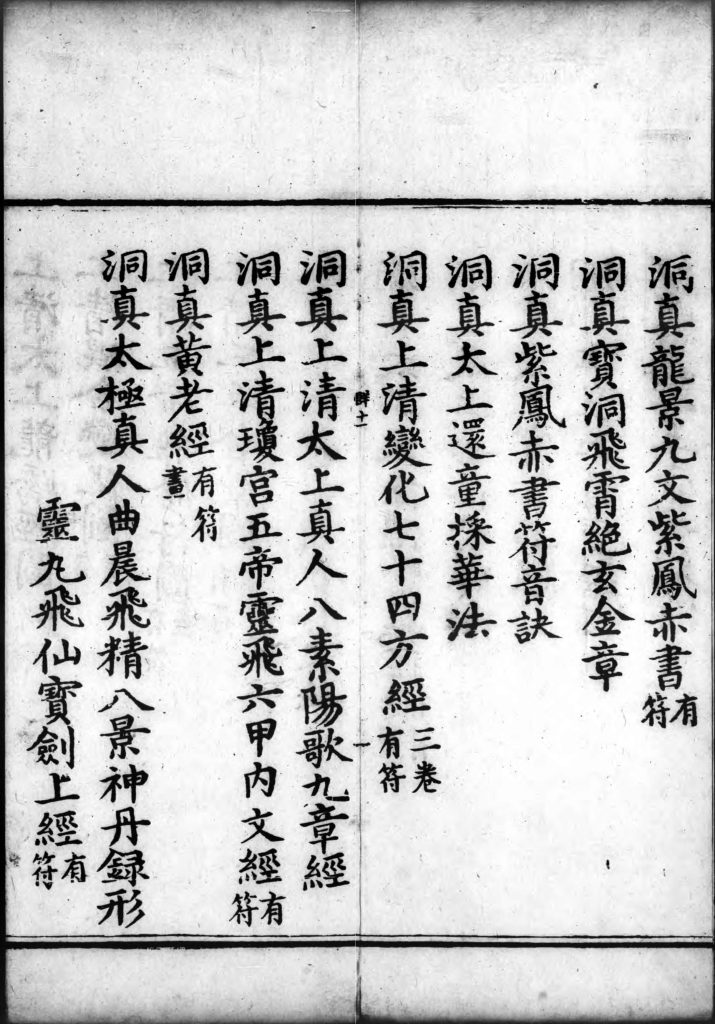 洞真龍景九文紫鳳赤書有符
洞真寶洞飛霄絶玄金章
洞真紫鳳赤書符音訣
洞真太上還童採華法
洞真上清變化七十四方經三卷有符
洞真上清太上真人八素陽歌九章經
洞真上清瓊宫五帝靈飛六甲内文經有符
洞真黄老經有符畫
洞真太極真人曲晨飛精八景神丹録形
靈丸飛仙寶劍上經有符